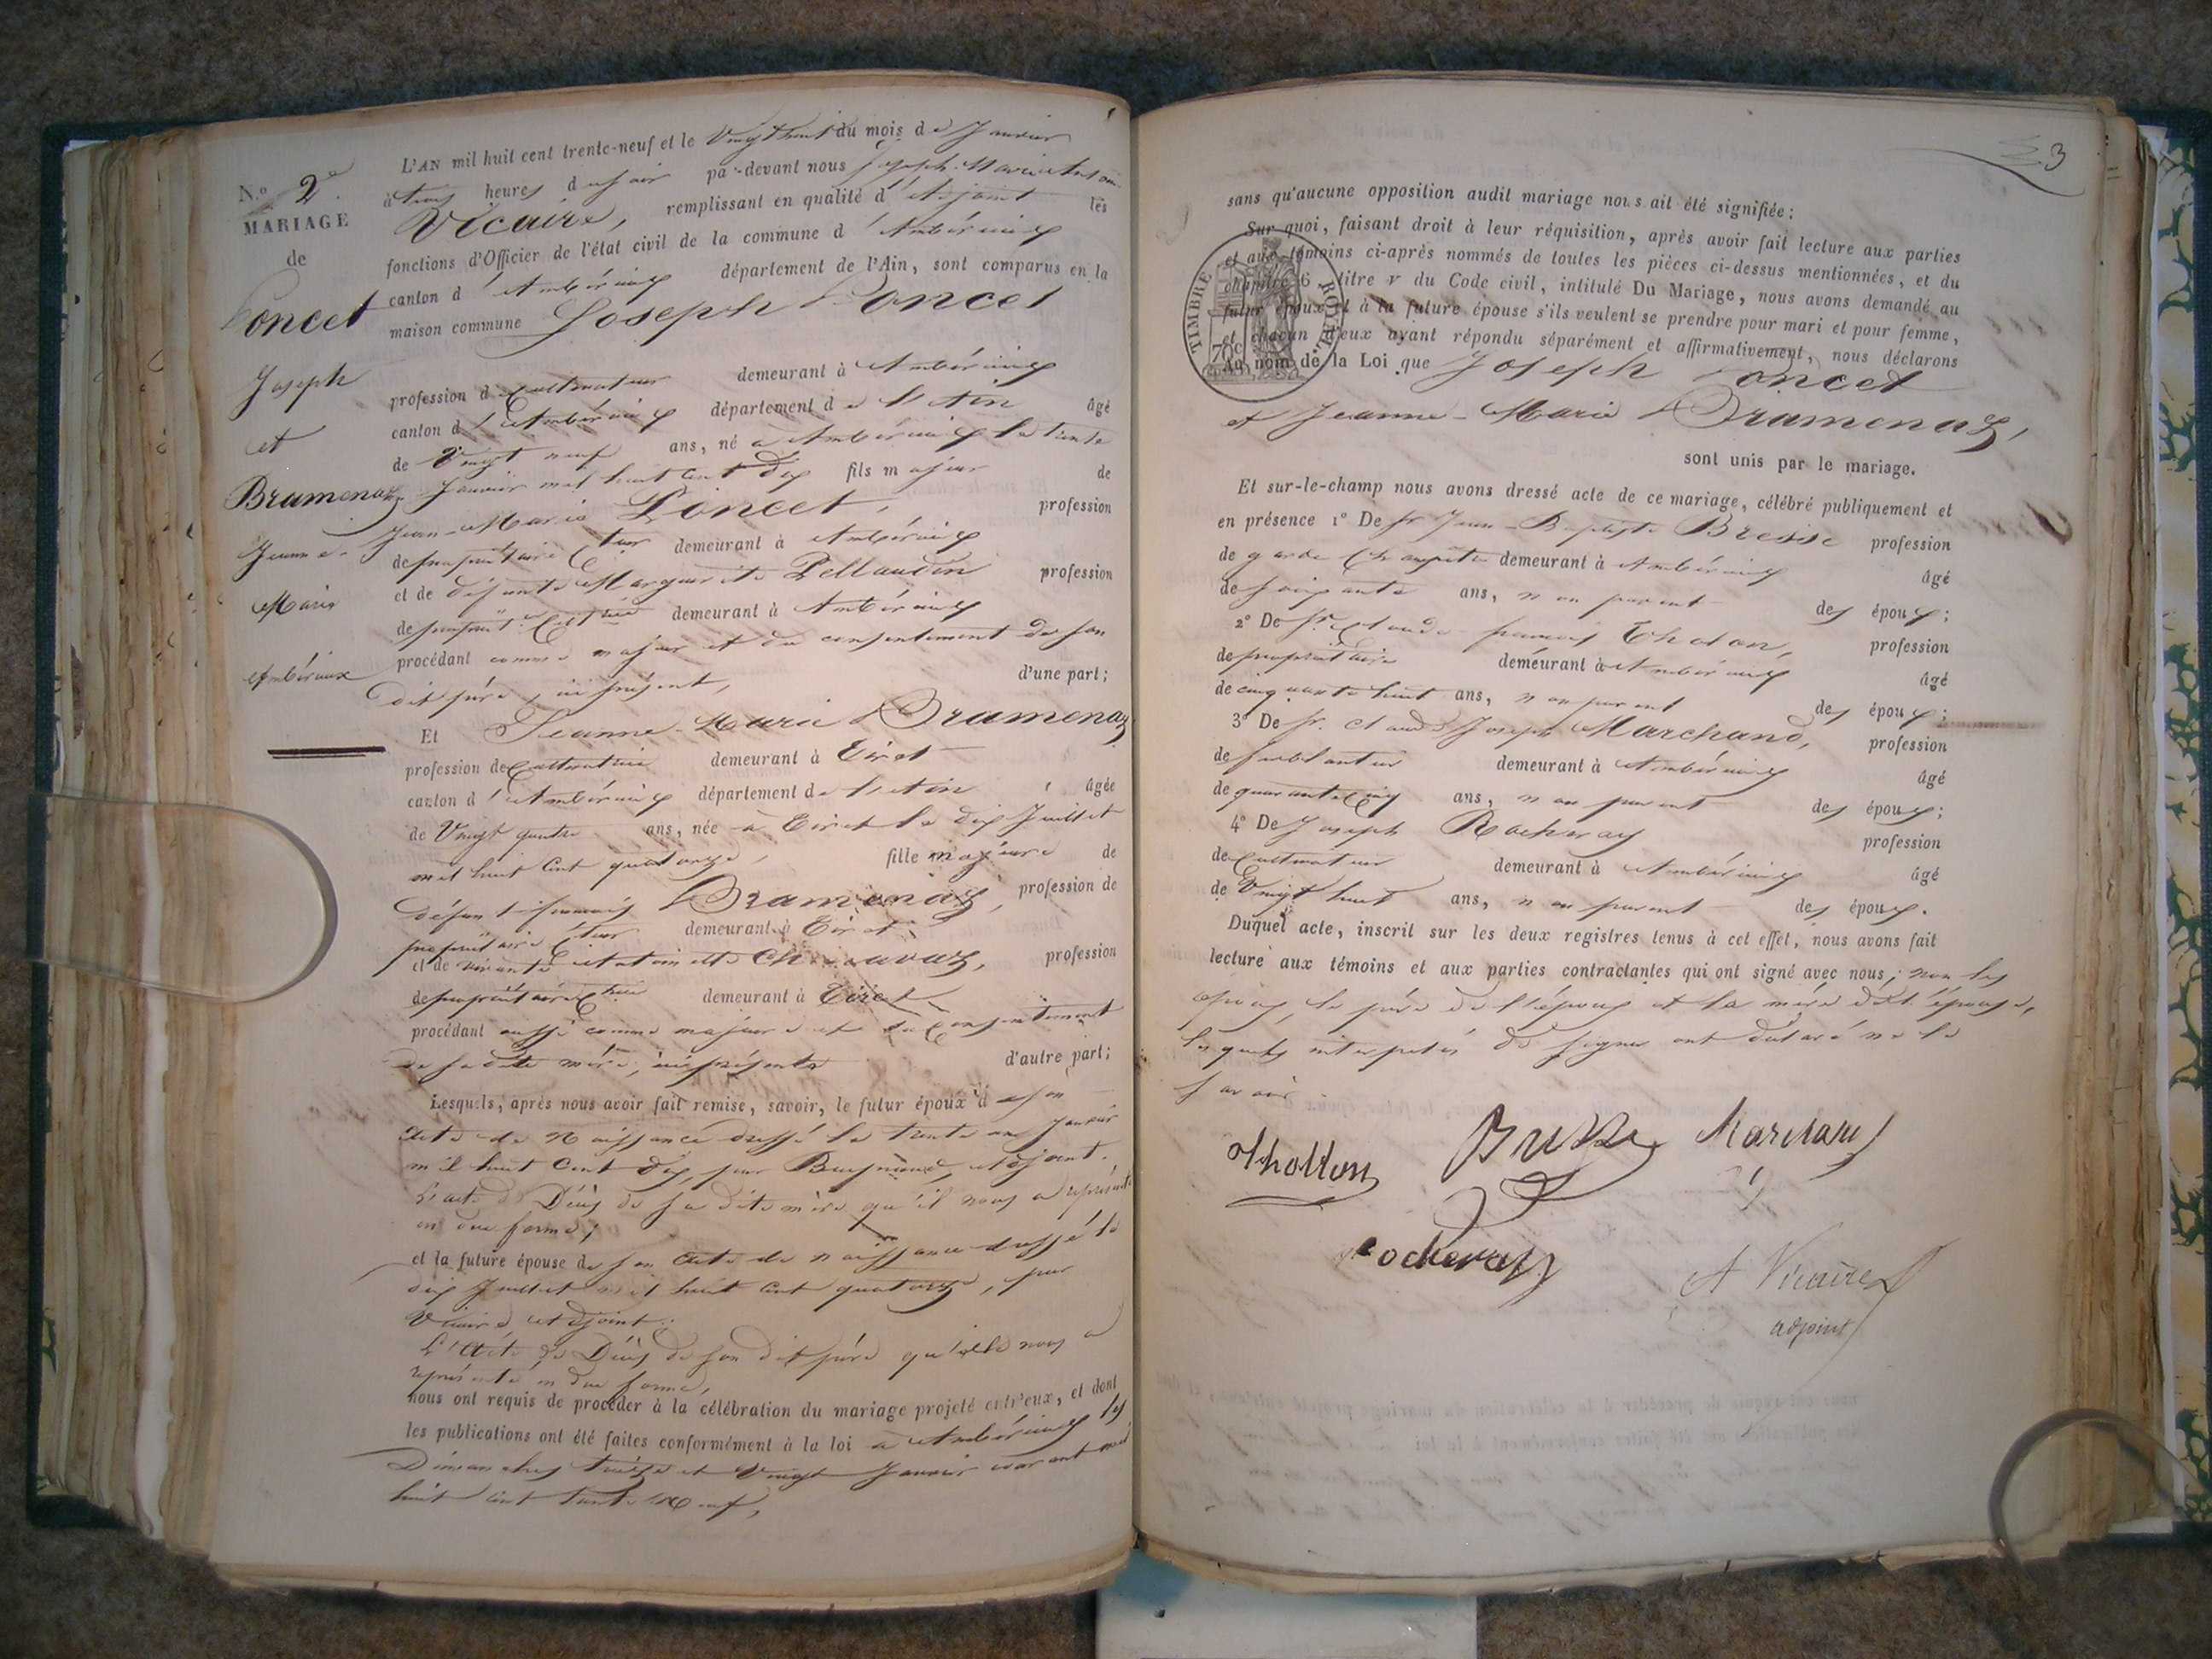 N.º 2e.
MARIAGE
de
Poncet
Joseph
et
Bramenaz
Jeanne-
Marie
Ambérieux
L'AN mil huit cent trente-neuf et le Vingt huit du mois de Janvier
à trois heures du soir par-devant nous Joseph-Marie Antoine
Vicaire, remplissant en qualité d'Adjoint les
fonctions d'Officier de l'état civil de la commune d'Ambérieux
canton d'Ambérieux département de l'Ain, sont comparus en la
maison commune Joseph Poncet
profession de Cultivateur demeurant à Ambérieux
canton d'Ambérieux département de l'Ain âgé
de Vingt neuf ans, né à Ambérieux le trente
Janvier mil huit cent dix fils majeur de
Jean-Marie Poncet, profession
de propriétaire Cteur demeurant à Ambérieux
et de défunte Marguerite Pellaudin profession
de propriét. Cultrice demeurant à Ambérieux
procédant comme majeur et du consentement de son
dit père, ici présent, d'une part;
Et Jeanne-Marie Bramenaz
profession de Cultivatrice demeurant à Tiret
canton d'Ambérieux département de l'Ain âgée
de Vingt quatre ans, née à Tiret le dix Juillet
mil huit cent quatorze, fille majeure de
défunt François Bramenaz, profession de
propriétaire Cteur demeurant à Tiret
et de vivante Antoinette profession
de propriétaire Ctrice demeurant à Tiret
procédant aussi comme majeure et du Consentement
de sa dite mère, ici présente d'autre part;
Lesquels, après nous avoir fait remise, savoir, le futur époux de son
Acte de Naissance dressé le trente un Janvier
mil huit Cent dix, par Adjoint.
L'acte de Décès de sa dite mère qu'il nous a représenté
en due forme;
et la future épouse de son Acte de naissance dressé le
dix Juillet mil huit cent quatorze, par
Vicaire Adjoint.
L'Acte de Décès de son dit père qu'elle nous a
représenté en due forme,
nous ont requis de procéder à la célébration du mariage projeté entr'eux, et dont
les publications ont été faites conformément à la loi à Ambérieux les
Dimanches treize et Vingt Janvier courant mil
huit cent trente Neuf,
3
sans qu'aucune opposition audit mariage nous ait été signifiée;
Sur quoi, faisant droit à leur réquisition, après avoir fait lecture aux parties
et aux témoins ci-après nommés de toutes les pièces ci-dessus mentionnées, et du
chapitre 6, titre v du Code civil, intitulé Du Mariage, nous avons demandé au
futur époux et à la future épouse s'ils veulent se prendre pour mari et pour femme,
et chacun d'eux ayant répondu séparément et affirmativement, nous déclarons
Au nom de la Loi que Joseph Poncet
et Jeanne-Marie Bramenaz,
sont unis par le mariage.
TIMBRE ROYAL
70c
Et sur-le-champ nous avons dressé acte de ce mariage, célébré publiquement et
en présence 1º De Sr Jean-Baptiste Bresse profession
de garde Champêtre demeurant à Ambérieux âgé
de soixante ans, non parent des époux;
2º De Sr Claude-françois Tholon, profession
de propriétaire demeurant à Ambérieux âgé
de cinquante huit ans, non parent des époux;
3º De Sr. Claude Joseph Marchand, profession
de ferblantier demeurant à Ambérieux âgé
de quarante cinq ans, non parent des époux;
4º De Joseph Rocheray profession
de Cultivateur demeurant à Ambérieux âgé
de Vingt huit ans, non parent des époux.
Duquel acte, inscrit sur les deux registres tenus à cet effet, nous avons fait
lecture aux témoins et aux parties contractantes qui ont signé avec nous; non les
époux, le père de l'époux et la mère de l'épouse,
lesquels interpelés de signer ont déclaré ne le
savoir.
Thollon Bresse Marchand
Rocheray
A Vicaire
adjoint